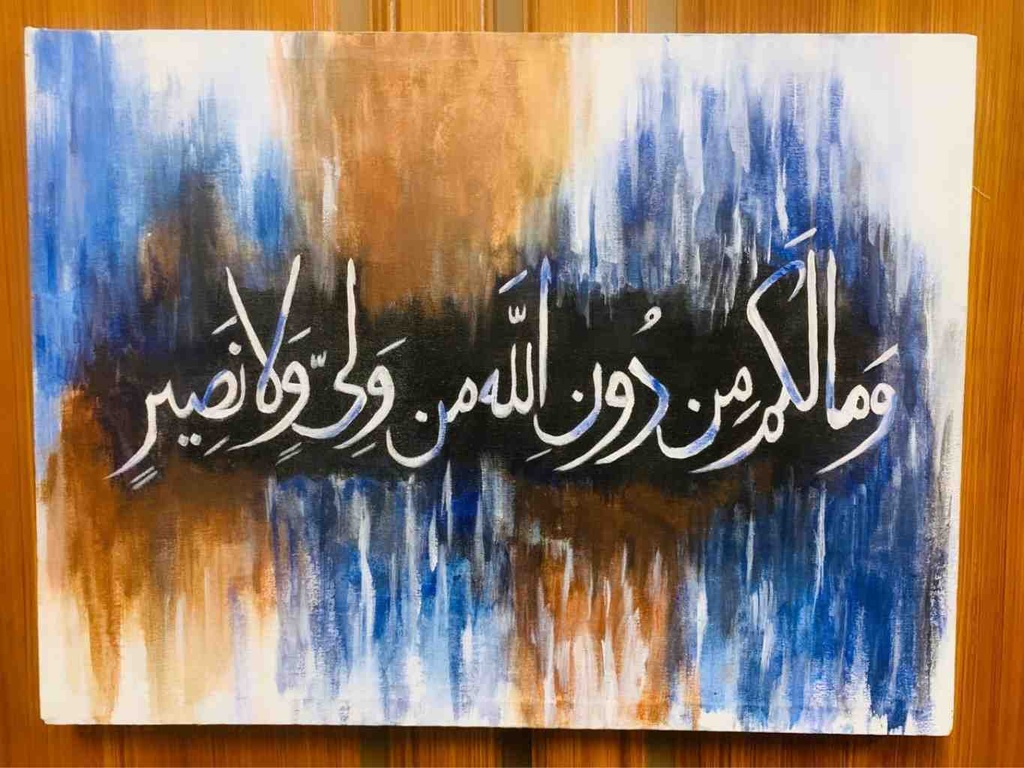 وَمالَكُم مِن دُونِ اللَّه مِن وَلِيٍّ وَلانَصِيرٍ